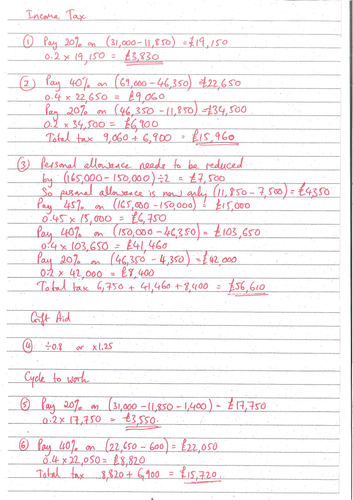 Income Tax
① Pay 20% on (31,000-11,850) = £19,150
0.2 x 19,150 = £3,830
② Pay 40% on (69,000-46,350) = £22,650
0.4 x 22,650 = £9,060
Pay 20% on (46,350-11,850) = £34,500
0.2 x 34,500 = £6,900
Total tax 9,060 + 6,900 = £15,960
③ Personal allowance needs to be reduced
by (165,000-150,000) ÷ 2 = £7,500
So personal allowance is now only (11,850-7,500) = £4350
Pay 45% on (165,000-150,000) = £15,000
0.45 x 15,000 = £6,750
Pay 40% on (150,000-46,350) = £103,650
0.4 x 103,650 = £41,460
Pay 20% on (46,350-4,350) = £42,000
0.2 x 42,000 = £8,400
Total tax 6,750 + 41,460 + 8,400 = £56,610
Gift Aid
④ ÷0.8 or x1.25
Cycle to work
⑤ Pay 20% on (31,000-11,850-1,400) = £17,750
0.2 x 17,750 = £3,550
⑥ Pay 40% on (22,650-600) = £22,050
0.4 x 22,050 = £8,820
Total tax 8,820 + 6,900 = £15,720